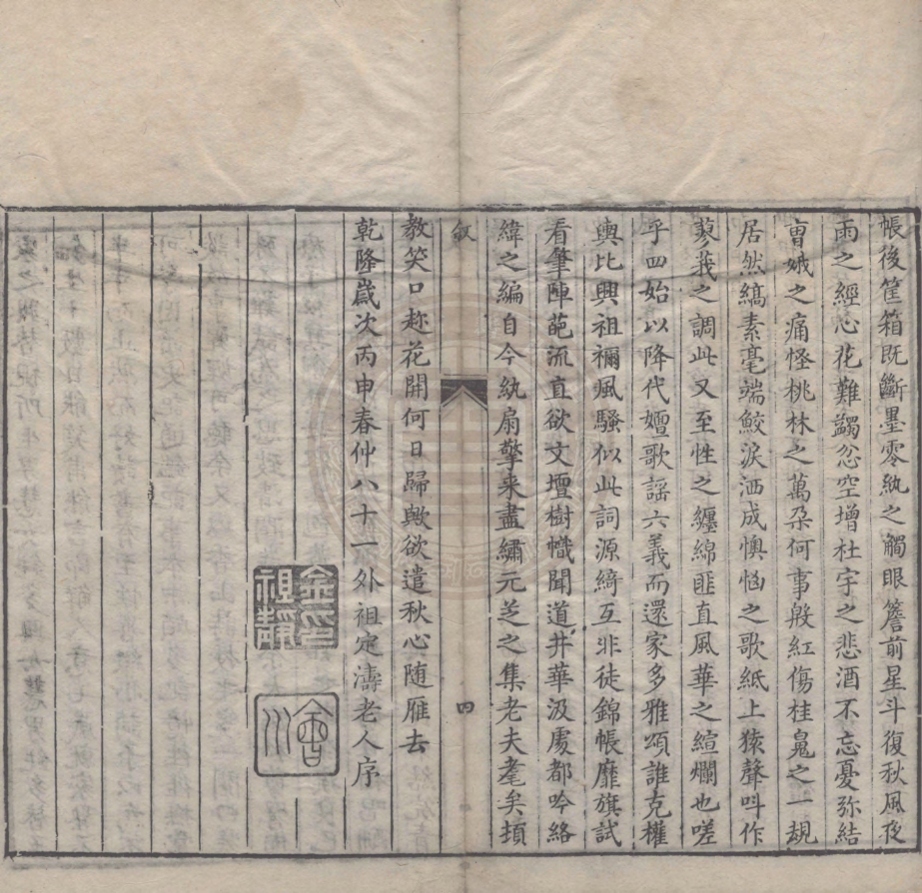 帳後筐箱既斷墨零紈之觸眼簷前星斗復秋風夜
雨之經心花難蠲忿空增杜宇之悲酒不忘憂弥結
曺娥之痛怪桃林之萬朶何事殷紅傷桂䰟之一規
居然縞素毫端鮫淚洒成懊惱之歌紙上猿聲叫作
蓼莪之調此又至性之纏綿匪直風華之絢爛也嗟
乎四始以降代嬗歌謡六義而還家多雅頌誰克權
輿比興祖禰風騷似此詞源綺互非徒錦帳靡旗試
看筆陣葩流直欲文壇樹幟聞道井華汲處都吟絡
緯之編自今紈扇擎来盡繡元芝之集老夫耄矣頻
叙
四
教笑口趂花開何日歸歟欲遣秋心随雁去
乾隆歲次丙申春仲八十一外祖定濤老人序
金印
祖靜
會川